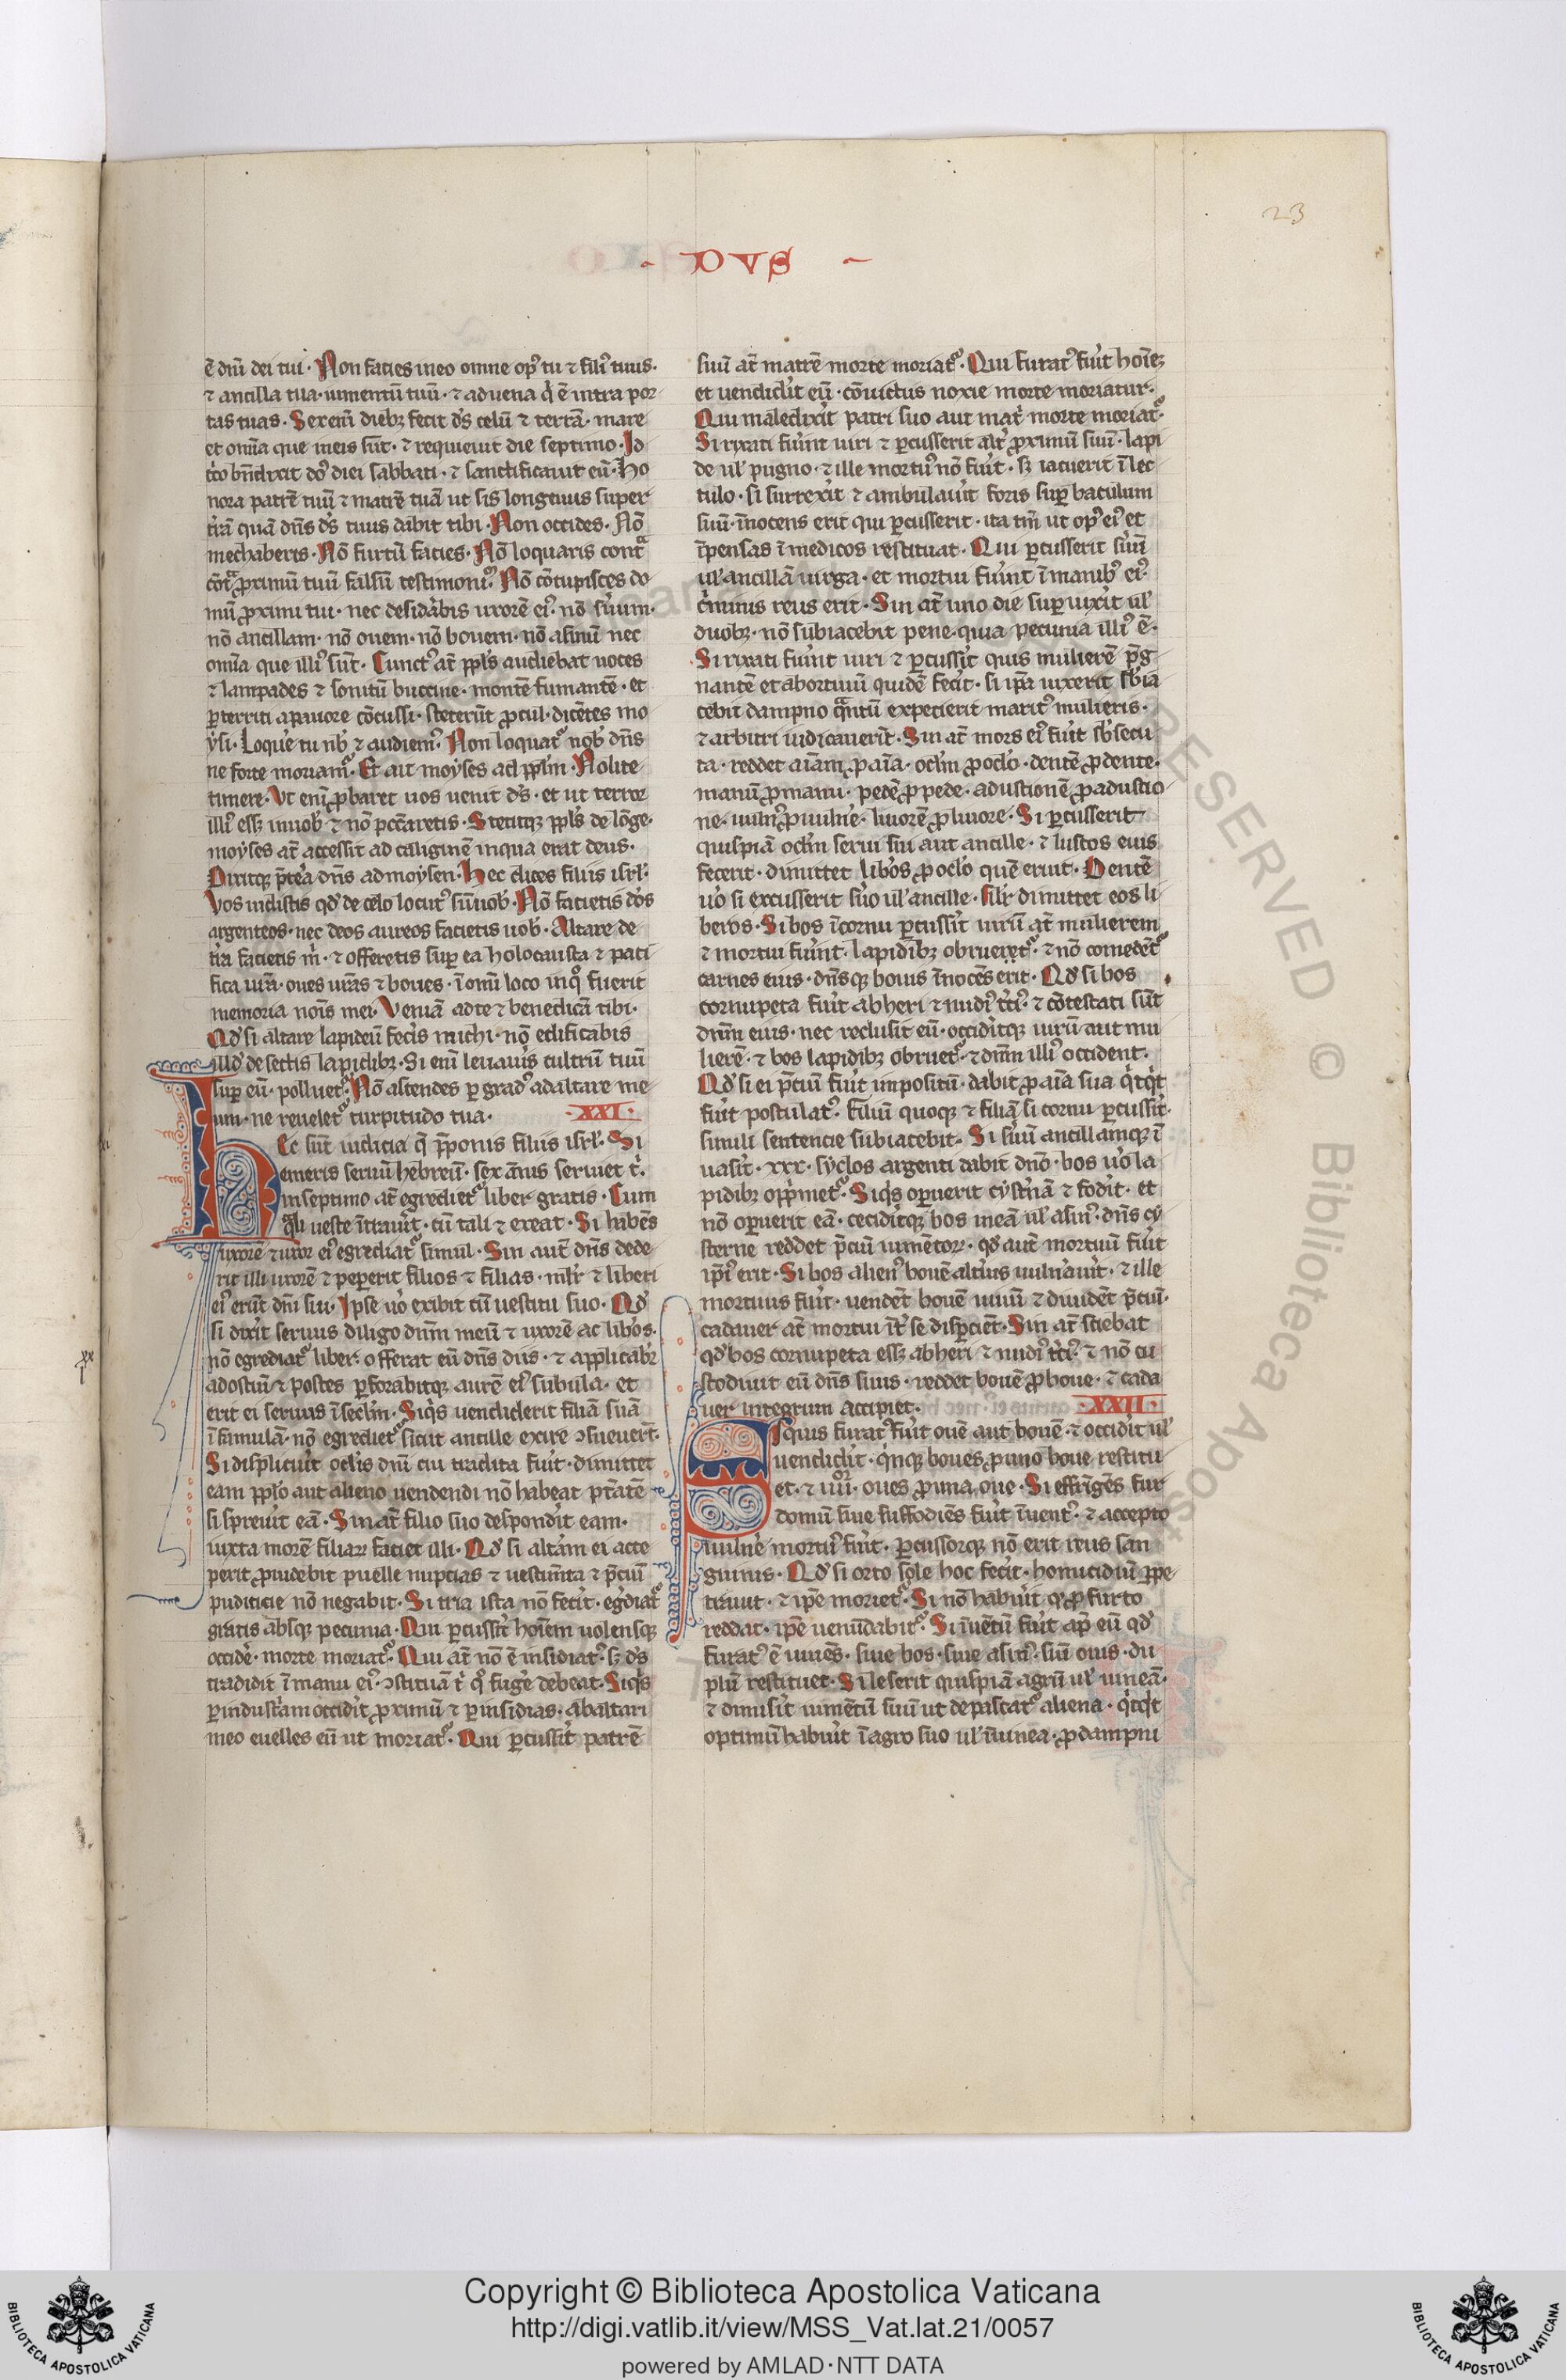 23
· DVS ·
ē dñi dei tui · Non facies in eo omne op᷒ tu ⁊ fili᷒ tuus ·
⁊ ancilla tua · iumentū tuū · ⁊ aduena q̇ ē intra por
tas tuas · Sex eni diebꝫ fecit d̄s celū ⁊ terrā · mare
et om̄ia que in eis sūt · ⁊ requieuit die septimo · Id
c̊co bn̄dixit do᷒ diei sabbati · ⁊ sanctificauit eū · Ho
nora patrē tuū ⁊ matrē tuā ut sis longeuus super
t̄rā quā dn̄s d̄s tuus dabit tibi · Non occides · Nō
mechaberis · Nō furtū facies · Nō loquaris contᵃ
cōtᵃ ꝓximū tuū falsū testimoniū · Nō cōcupisces do
mū ꝓximi tui · nec desidābis uxorē ei᷒ · nō s̄uum ·
nō ancillam · nō ouem · nō bouem · nō asinū nec
om̄ia que illi᷒ sūt · Cunct᷒ at̄ ppl̄s audiebat uoces
⁊ lampades ⁊ sonitū buccine · montē fumantē · et
ꝑterriti a pauore cōcussi · steterūt ꝓcul · dicētes mo
ysi · Loque᷑ tu nob̄ ⁊ audiem᷒ · Non loquat᷑ nob̄ dn̄s
ne forte moriam᷑ · Et ait moyses ad ppl̄m · Nolite
timere · Vt eni ꝓbaret uos uenit d̄s · et ut terror
illi᷒ esset in uob̄ ⁊ nō peccaretis · Stetitqꝫ ppl̄s de lōge ·
moyses at̄ accessit ad caliginē in qua erat deus ·
Dixitqꝫ p̄t̄ea dn̄s ad moysen · Hec dices filiis isrl̄ ·
Vos uidistis qd̄ de celo locut᷒ sū uob̄ · Nō facietis do̅s
argenteos · nec deos aureos facietis uob̄ · Altare de
t̄ra facietis m̊ · ⁊ offeretis sup̄ ea holocausta ⁊ paci
fica ur̄a · oues ur̄as ⁊ boues · ī om̄i loco in qo fuerit
memoria nōis mei · Veniā ad te ⁊ benedicā tibi ·
Qd̄ si altare lapideū fec̄is michi · nō edificabis
illd̄ de sectis lapidibꝫ · Si enī leuau̅is cultrū tuū
sup̄ eū · polluet᷑ · Nō ascendes p grad᷒ ad altare me
um · ne reuelet᷑ turpitudo tua · XXI ·
Hec sūt iudicia q̄ p̄ponis filiis isrl̄ · Si
emeris seruū hebreū · sex ānis seruiet t̊ ·
in septimo at̄ egrediet᷑ liber gratis · Cum
qᵃli ueste ītrauit · cū tali ⁊ exeat · Si habēs
uxorē ⁊ uxor ei᷒ egrediat᷑ simul · Sin aut̄ dn̄s dede
rit illi uxorē ⁊ peperit filios ⁊ filias · ml̄r ⁊ liberi
ei᷒ erūt dn̄i sui · Ipse uo exibit cū uestitu suo · Qd̄
si dix̄it seruus diligo dn̄m meū ⁊ uxorē ac lib̄os ·
nō egrediat᷑ liber · offerat eū dn̄s diis · ⁊ applicabr̄
ad ostiū ⁊ postes · ꝑforabitqꝫ aurē ei᷒ subula · et
erit ei seruus ī secl̄m · Siq̊s uendiderit filiā suā
ī famulā · nō egrediet᷑ sicut ancille exire ꝯsueuert̄ ·
Si displicuit ocl̄is dn̄i cui tradita fuit · dimittet
eam · ppl̄o aut alieno uendendi nō habeat p̄tatē
si spreuit eā · Sin at̄ filio suo despondit eam ·
iuxta morē filiaꝝ faciet illi · Qd̄ si alt̄am ei acce
perit ꝓuidebit puelle nuptias ⁊ uestim̄ta ⁊ p̄ciū
pudicicie nō negabit · Si tria ista nō fec̄it · egdiat᷑
gratis absqꝫ pecunia · Qui ꝑcusserit hoīem uolensqꝫ
occide᷑ · morte moriat᷑ · Qui at̄ nō ē insidiat᷒ · sꝫ d̄s
tradidit ī manu ei᷒ · ꝯstituā t̊ qo fuge᷑ debeat · Siq̊s
ꝑ industriam occidit ꝓximū ⁊ ꝑ insidias · ab altari
meo euelles eū ut moriat᷑ · Qui ꝑcusserit patrē
suū at̄ matrē morte moriat᷑ · Qui furat᷒ fuit hoīeꝫ
et uendidit eū · cōuictus noxie morte moriatur ·
Qui maledixit patri suo aut mat̊ morte moriat᷑ ·
Si rixati fuint uiri ⁊ ꝑcusserit alt̄ ꝓximū suū · lapi
de ul̄ pugno · ⁊ ille mortu᷒ nō fuit · sꝫ iacuerit ī lec
tulo · si surrexit ⁊ ambulauit foris sup̄ baculum
suū · īnocens erit qui ꝑcusserit · ita tm̄ ut op̄ ei᷒ et
īpensas ī medicos restituat · Qui ꝑcusserit s̄uū
ul̄ ancillā uirga · et mortui fuint ī manib᷒ ei᷒ ·
c̊minis reus erit · Sin at̄ uno die sup̄uixit ul̄
duobꝫ · nō subiacebit pene · quia pecunia illi᷒ ē ·
Si rixati fuint uiri ⁊ ꝑcussit quis mulierē p̄g
nantē et abortiuū quidē fecit · si ipā uixerit sb̄ia
cebit dampno qᵃntū expecierit marit᷒ mulieris ·
⁊ arbitri iudicauerīt · Sin at̄ mors ei᷒ fuit sb̄secu
ta · reddet aīam ꝓ aīa · ocl̄m ꝓ oclo · dentē ꝓ dente ·
manū ꝓ manu · pedē ꝓ pede · adustionē ꝓ adustio
ne · uuln᷒ ꝓ uulne᷑ · liuorē ꝓ liuore · Si ꝑcusserit
quispiā ocl̄m serui sui aut ancille · ⁊ luscos eius
fecerit · dimittet lib̄os ꝓ oclo quē eruit · Dentē
uo si excusserit s̄uo ul̄ ancille · sil̄r dimittet eos li
beros · Si bos īcornu ꝑcussit uirū at̄ mulierem
⁊ mortui fuint · lapidibꝫ obrueret᷑ · ⁊ nō comedēt᷑
carnes eius · dn̄sqꝫ bouis īnocēs erit · Qd̄ si bos
cornupeta fuit ab heri ⁊ nudi᷒ t̊ci᷒ · ⁊ cōtestati sūt
dnm̄ eius · nec reclusit eū · occiditqꝫ uirū aut mu
lierē · ⁊ bos lapidibꝫ obruet᷑ · ⁊ dnm̄ illi᷒ occident ·
Qd̄ si ei p̄ciū fuit impositū · dabit ꝓ aīa sua q̊cq̊t
fuit postulat᷒ · Filiū quoqꝫ ⁊ filiā si cornu ꝑcussit ·
simili sentencie subiacebit · Si s̄uū ancillamqꝫ ī
uasit · xxx · syclos argenti dabit dn̄o · bos uo la
pidibꝫ opp̊met᷑ · Siq̊s operuerit cyst̄nā ⁊ fodit · et
nō operuerit eā · ceciditqꝫ bos in eā ul̄ asin᷒ · dn̄s cy
sterne reddet p̄ciū iumētoꝝ · qd̄ aut̄ mortuū fuit
ip̄i᷒ erit · Si bos alien᷒ bouē alt̄ius uuln̄auit · ⁊ ille
mortuus fuit · uendēt bouē uiuū ⁊ diuidēt p̄ciū ·
cadauer at̄ mortui īt̄ se disp̄cient · Sin at̄ sciebat
qd̄ bos cornupeta esset ab heri ⁊ nudi᷒ t̊ci᷒ · ⁊ nō cu
stodiuit eū dn̄s suus · reddet bouē ꝓ boue · ⁊ cada
uer integrum accipiet · XXII ·
Siquis furat᷒ fuit ouē aut bouē · ⁊ occidit ul̄
uendidit · q̊nqꝫ boues ꝓ uno boue restitu
et · ⁊ iiiior · oues ꝓ una oue · Si effrīgēs fur
domū siue suffodiēs fuit īuent᷒ · ⁊ accepto
uulne᷑ mortu᷒ fuit · ꝑcussorqꝫ nō erit reus san
guinis · Qd̄ si orto sole hoc fecit · homicidiū ꝑpe
trauit · ⁊ ipē moriet᷑ · Si nō habuit qᵈ ꝓ furto
reddat · ipē uenūdabit᷑ · Si īuētū fuit ap̄ eū qd̄
furat᷒ ē uiuēs · siue bos · siue asin᷒ · siū ouis · du
plū restituet · Si leserit quispiā agrū ul̄ uineā ·
⁊ dimisit iumētū suū ut depascat᷑ aliena · q̊cq̊t
optimū habuit ī agro suo ul̄ ī uinea · ꝓ dampni
RESERVED © Biblioteca Apost
Copyright © Biblioteca Apostolica Vaticana
http://digi.vatlib.it/view/MSS_Vat.lat.21/0057
powered by AMLAD·NTT DATA
BIBLIOTECA APOSTOLICA VATICANA
BIBLIOTECA APOSTOLICA VATICANA